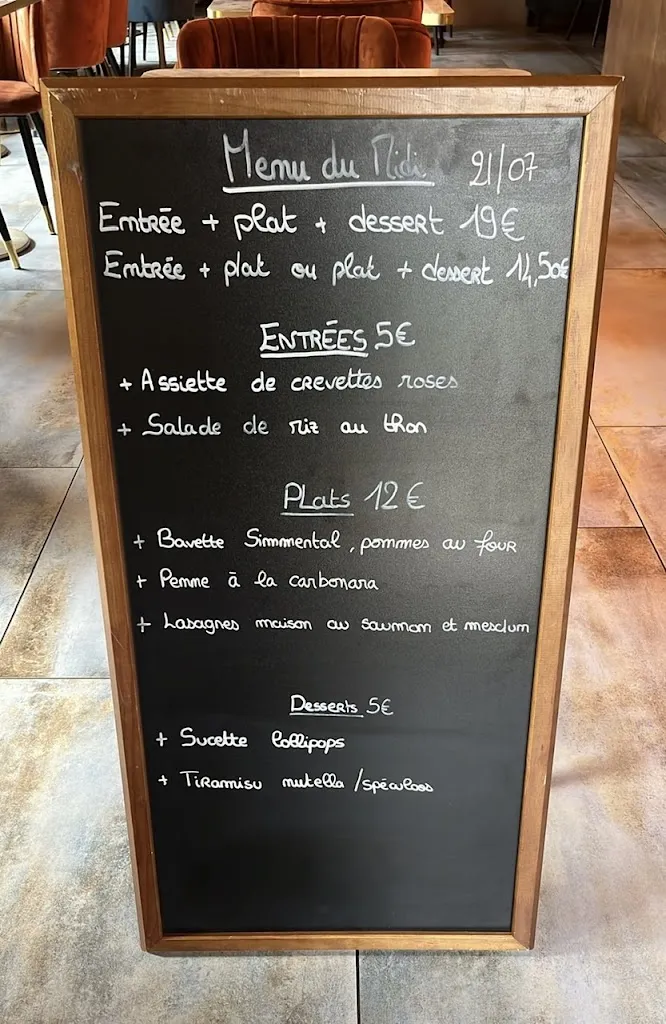 Menu du Midi 21/07
Entrée + plat + dessert 19€
Entrée + plat ou plat + dessert 14,50€
ENTRÉES 5€
+ Assiette de crevettes roses
+ Salade de riz au thon
PLats 12€
+ Bavette Simmental, pommes au four
+ Penne à la carbonara
+ Lasagnes maison au saumon et mesclun
Desserts 5€
+ Sucette lollipops
+ Tiramisu nutella /spéculoos